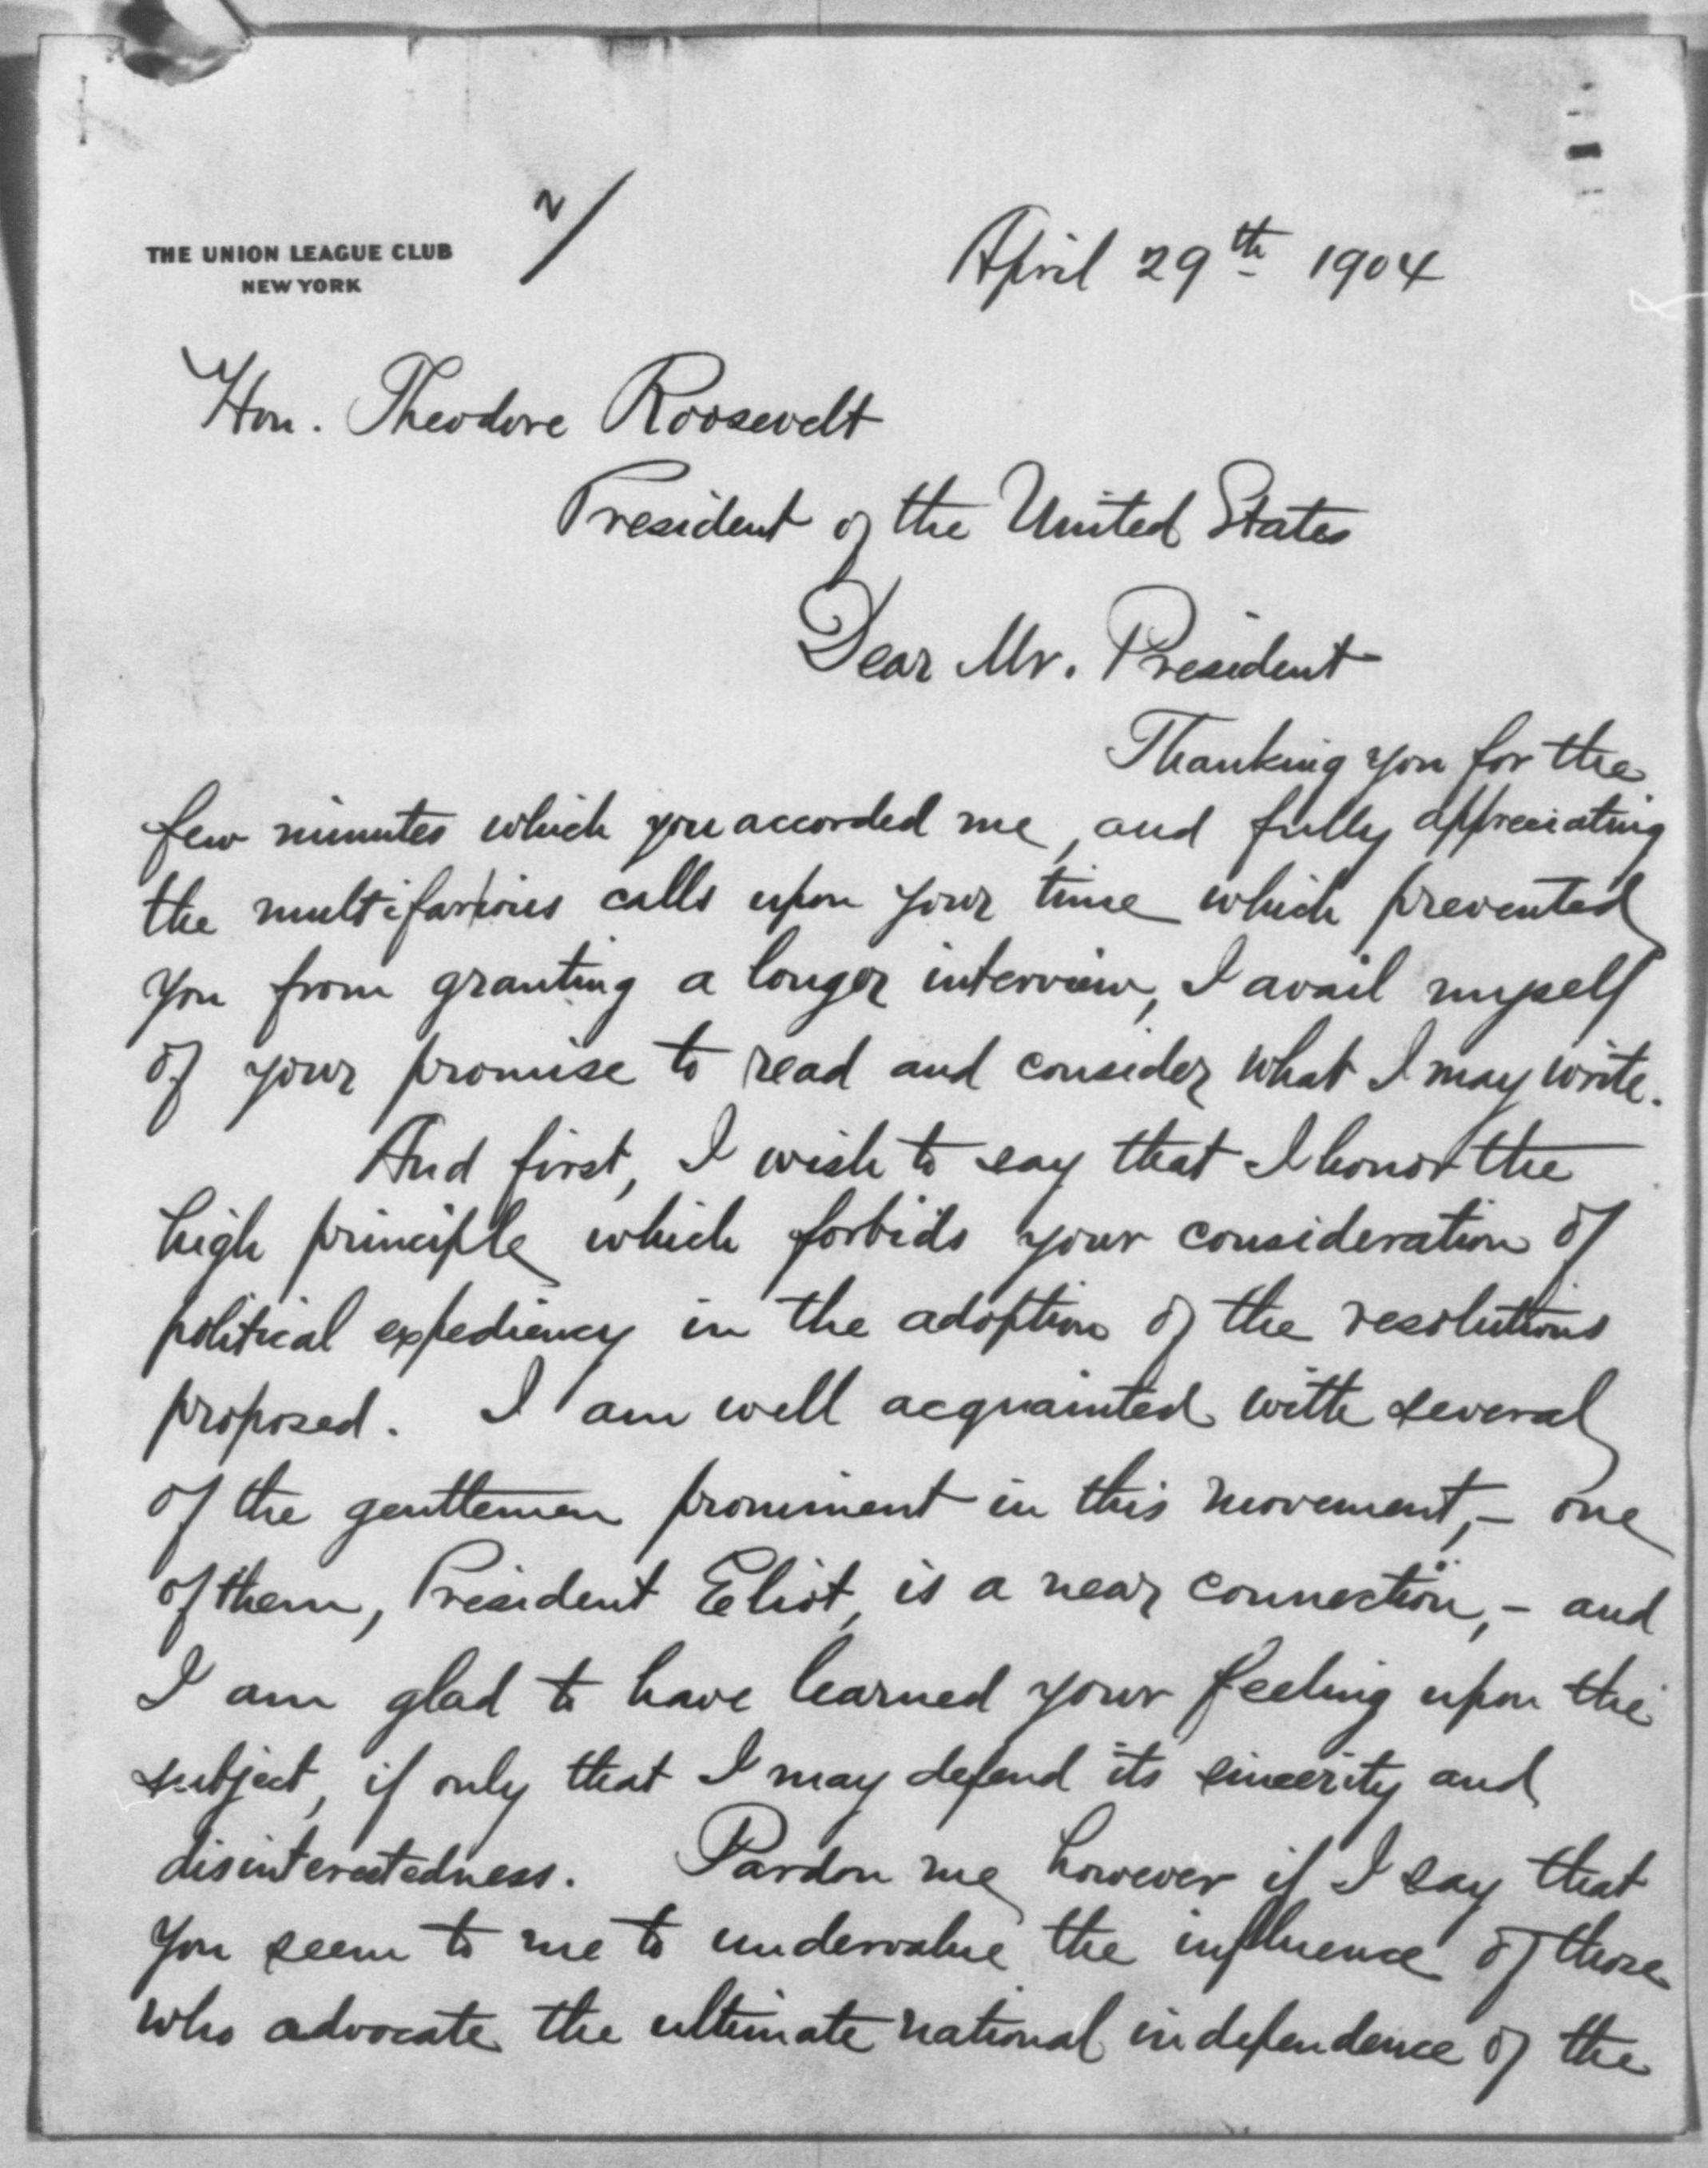 2/
THE UNION LEAGUE CLUB
NEW YORK
April 29th 1904
Hon. Theodore Roosevelt
President of the United States
Dear Mr. President
Thanking you for the
few minutes which you accorded me, and fully appreciating
the multifarious calls upon your time which prevented
you from granting a longer interview, I avail myself
of your promise to read and consider what I may write.
And first, I wish to say that I honor the
high principle which forbids your consideration of
political expediency in the adoption of the resolutions
proposed. I am well acquainted with several
of the gentlemen prominent in this movement, - one
of them, President Eliot, is a near connection, - and
I am glad to have learned your feeling upon the
subject, if only that I may defend its sincerity and
disinterestedness. Pardon me however if I say that
you seem to me to undervalue the influence of those
who advocate the ultimate national independence of the